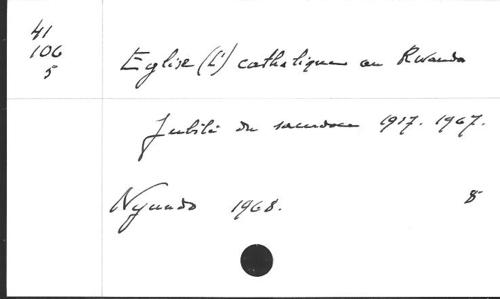 41
106
5
Eglise (L') catholique au Rwanda
Jubilé du sacerdoce 1917-1967.
Nyundo 1968. 8°